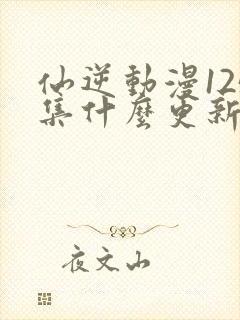 仙逆動漫12
集什麼更新
夜文山